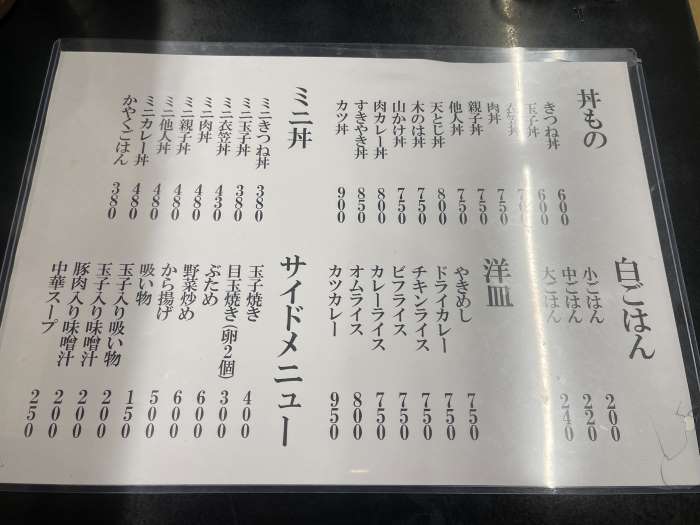 丼もの
きつね丼 600
玉子丼 600
衣笠丼
肉丼 750
親子丼 750
他人丼 750
天とじ丼 800
木のは丼 750
山かけ丼 750
肉カレー丼 800
すきやき丼 850
カツ丼 900
ミニ丼
ミニきつね丼 380
ミニ玉子丼 380
ミニ衣笠丼 430
ミニ肉丼 480
ミニ親子丼 480
ミニ他人丼 480
ミニカレー丼 480
かやくごはん 380
白ごはん
小ごはん 200
中ごはん 220
大ごはん 240
洋皿
やきめし 750
ドライカレー 750
チキンライス 750
ビフライス 750
カレーライス 750
オムライス 800
カツカレー 950
サイドメニュー
玉子焼き 400
目玉焼き(卵2個) 300
ぶため 600
野菜炒め 600
から揚げ 500
吸い物 150
玉子入り吸い物 200
玉子入り味噌汁 200
豚肉入り味噌汁 200
中華スープ 250